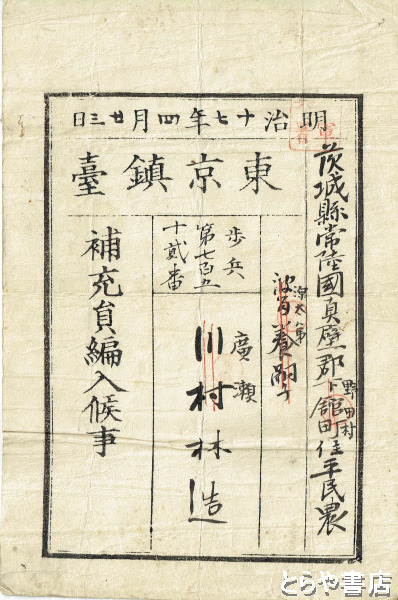 明治十七年四月廿三日
東京鎮臺
茨城縣常陸國真壁郡下舘町住平民農
野田村
養嗣子
歩兵
第七百五
十貳番
廣瀬
川村林造
補充員編入候事
とらや書店